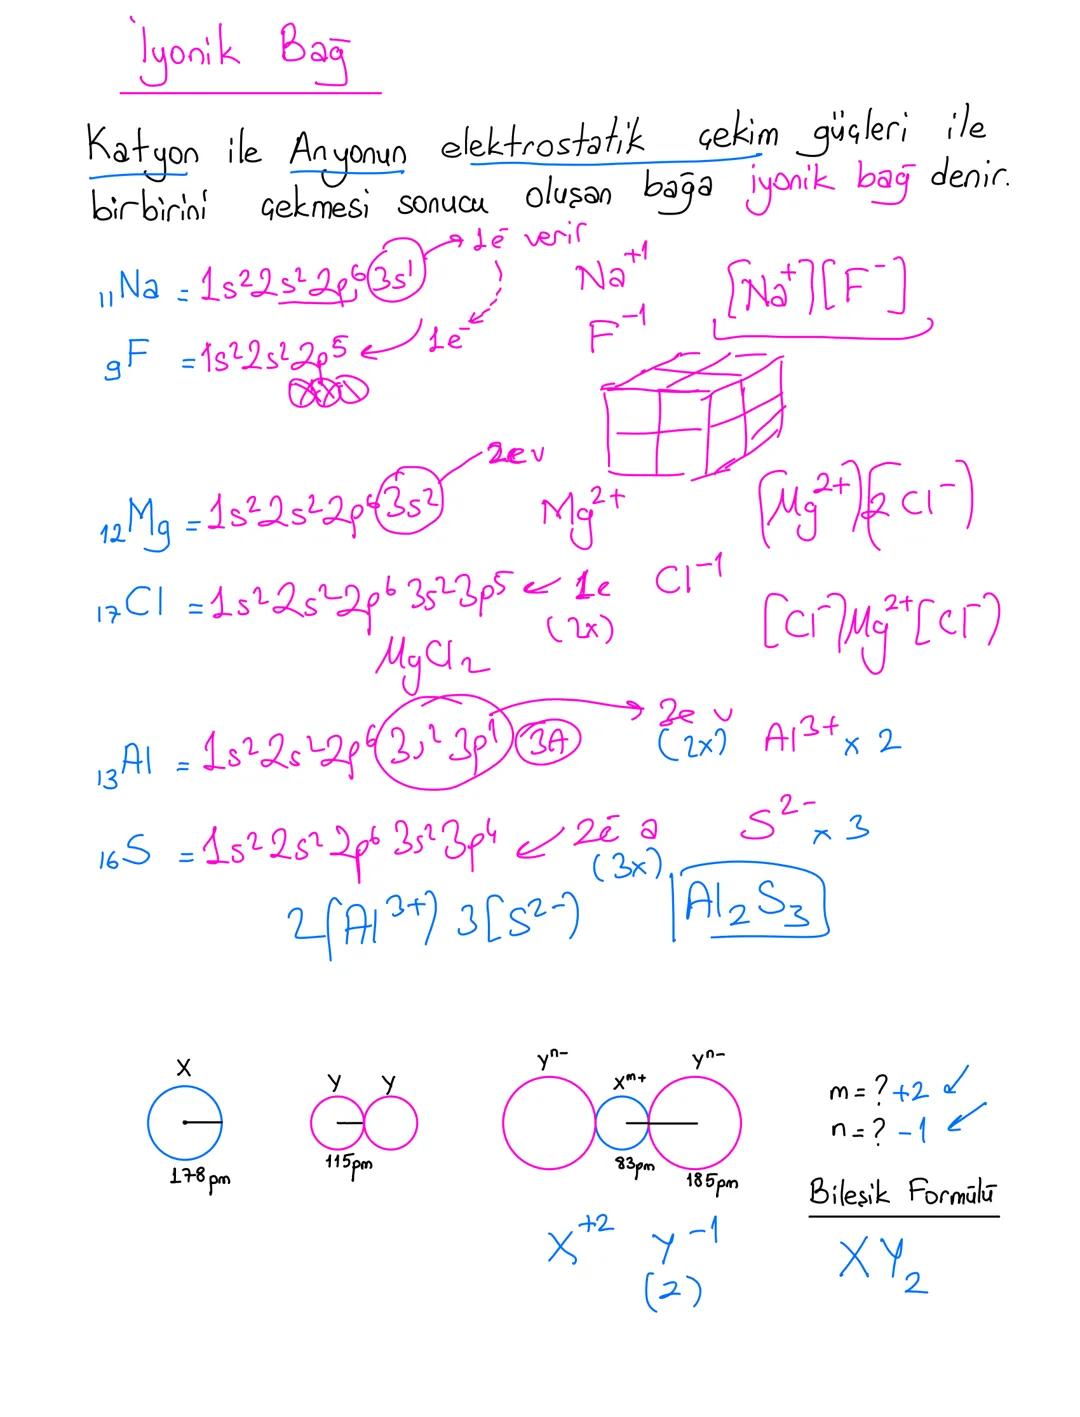 İyonik Bağ
Katyon ile Anyonun elektrostatik çekim güçleri ile
birbirini çekmesi sonucu oluşan bağa iyonik bağ denir.
₁₁Na = 1s²2s²2p⁶3s¹ → 1e⁻ verir Na⁺¹ [Na⁺][F⁻]
₉F = 1s²2s²2p⁵ ← 1e⁻ F⁻¹
₁₂Mg = 1s²2s²2p⁶3s² 2e v Mg²⁺ [Mg²⁺][2Cl⁻]
₁₇Cl = 1s²2s²2p⁶3s²3p⁵ ← 1e Cl⁻¹
(2x) [Cl⁻]Mg²⁺[Cl⁻]
MgCl₂
₁₃Al = 1s²2s²2p⁶3s²3p¹ 3A → 3e v Al³⁺ x 2
(2x)
₁₆S = 1s²2s²2p⁶3s²3p⁴ ← 2e⁻ a S²⁻ x 3
(3x)
2[Al³⁺) 3[S²⁻) Al₂S₃
X
178pm
Y Y
115pm
Yⁿ⁻ Xᵐ⁺ Yⁿ⁻
83pm 185pm
m = ? +2
n = ? -1
Bileşik Formülü
X⁺² Y⁻¹
(2)
XY₂